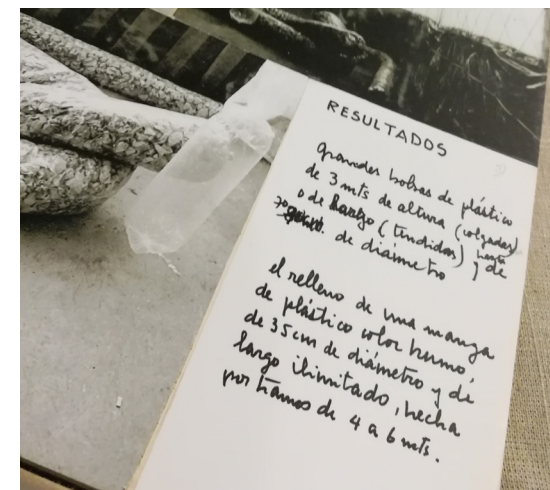 RESULTADOS
grandes bolsas de plástico
de 3 mts de altura (colgadas)
o de largo (tendidas) y de
hasta
70 de diámetro
el relleno de una manga
de plástico color humo,
de 35 cm de diámetro y de
largo ilimitado, hecha
por tramos de 4 a 6 mts.